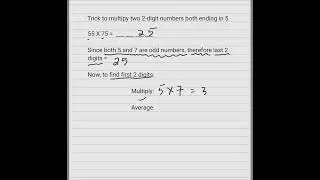 Trick to multipy two 2-digit numbers both ending in 5
55 X 75 = _ _ 2 5
Since both 5 and 7 are odd numbers, therefore last 2
digits = 25
Now, to find first 2 digits:
Multiply: 5 X 7 = 3
Average: